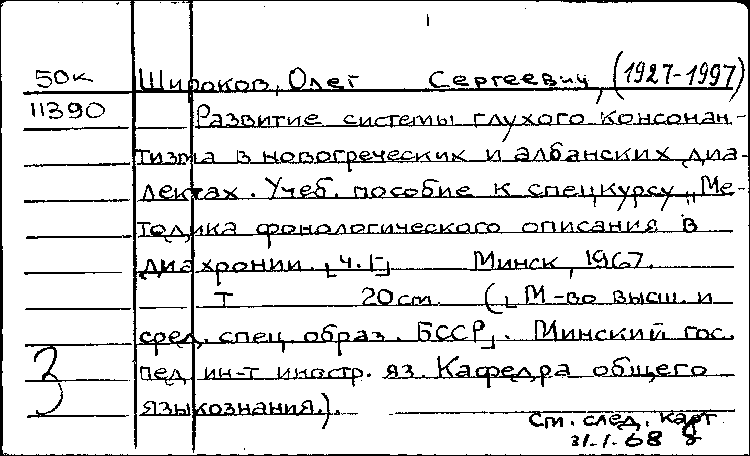 50к Широков, Олег Сергеевич, (1927-1997)
11390 Развитие системы глухого консонан-
тизма в новогреческих и албанских диа-
лектах. Учеб. пособие к спецкурсу „Ме-
тодика фонологического описания в
диахронии. [Ч. I] Минск, 1967.
Т 20 см. ([М-во высш. и
сред. спец. образ. БССР]. Минский гос.
пед. ин-т иностр. яз. Кафедра общего
языкознания.).
З
См. след. карт
31.1.68